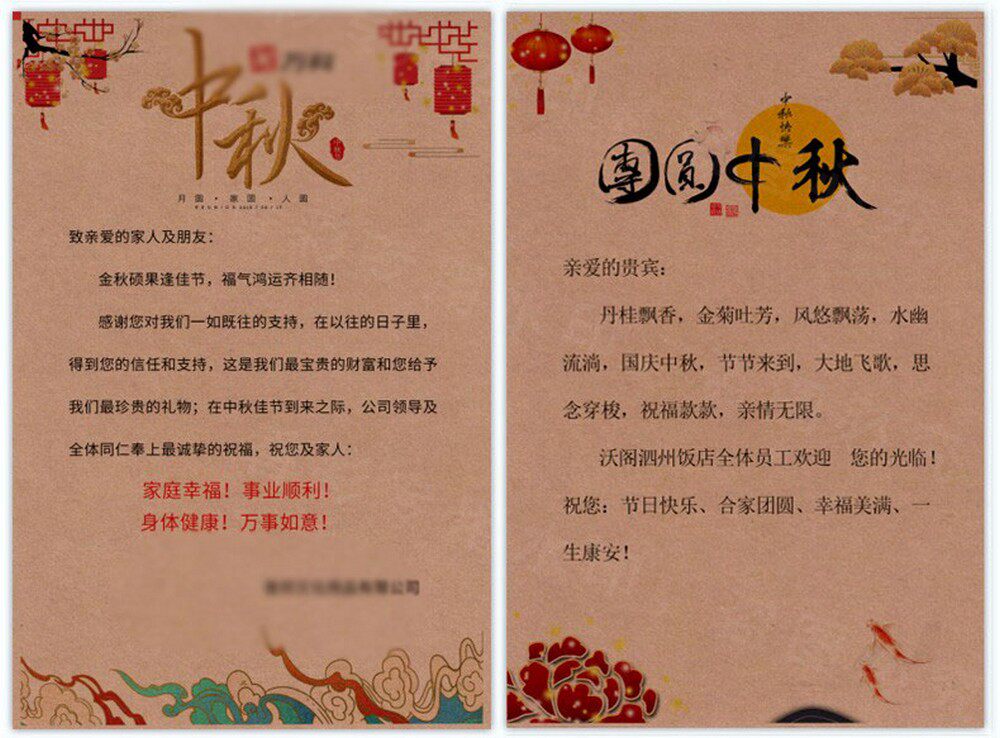 中秋
月圆·家圆·人圆
致亲爱的家人及朋友：
金秋硕果逢佳节，福气鸿运齐相随！
感谢您对我们一如既往的支持，在以往的日子里，
得到您的信任和支持，这是我们最宝贵的财富和您给予
我们最珍贵的礼物；在中秋佳节到来之际，公司领导及
全体同仁奉上最诚挚的祝福，祝您及家人：
家庭幸福！事业顺利！
身体健康！万事如意！
公司
中秋快樂
團圓中秋
亲爱的贵宾：
丹桂飘香，金菊吐芳，风悠飘荡，水幽
流淌，国庆中秋，节节来到，大地飞歌，思
念穿梭，祝福款款，亲情无限。
沃阁泗州饭店全体员工欢迎 您的光临！
祝您：节日快乐、合家团圆、幸福美满、一
生康安！